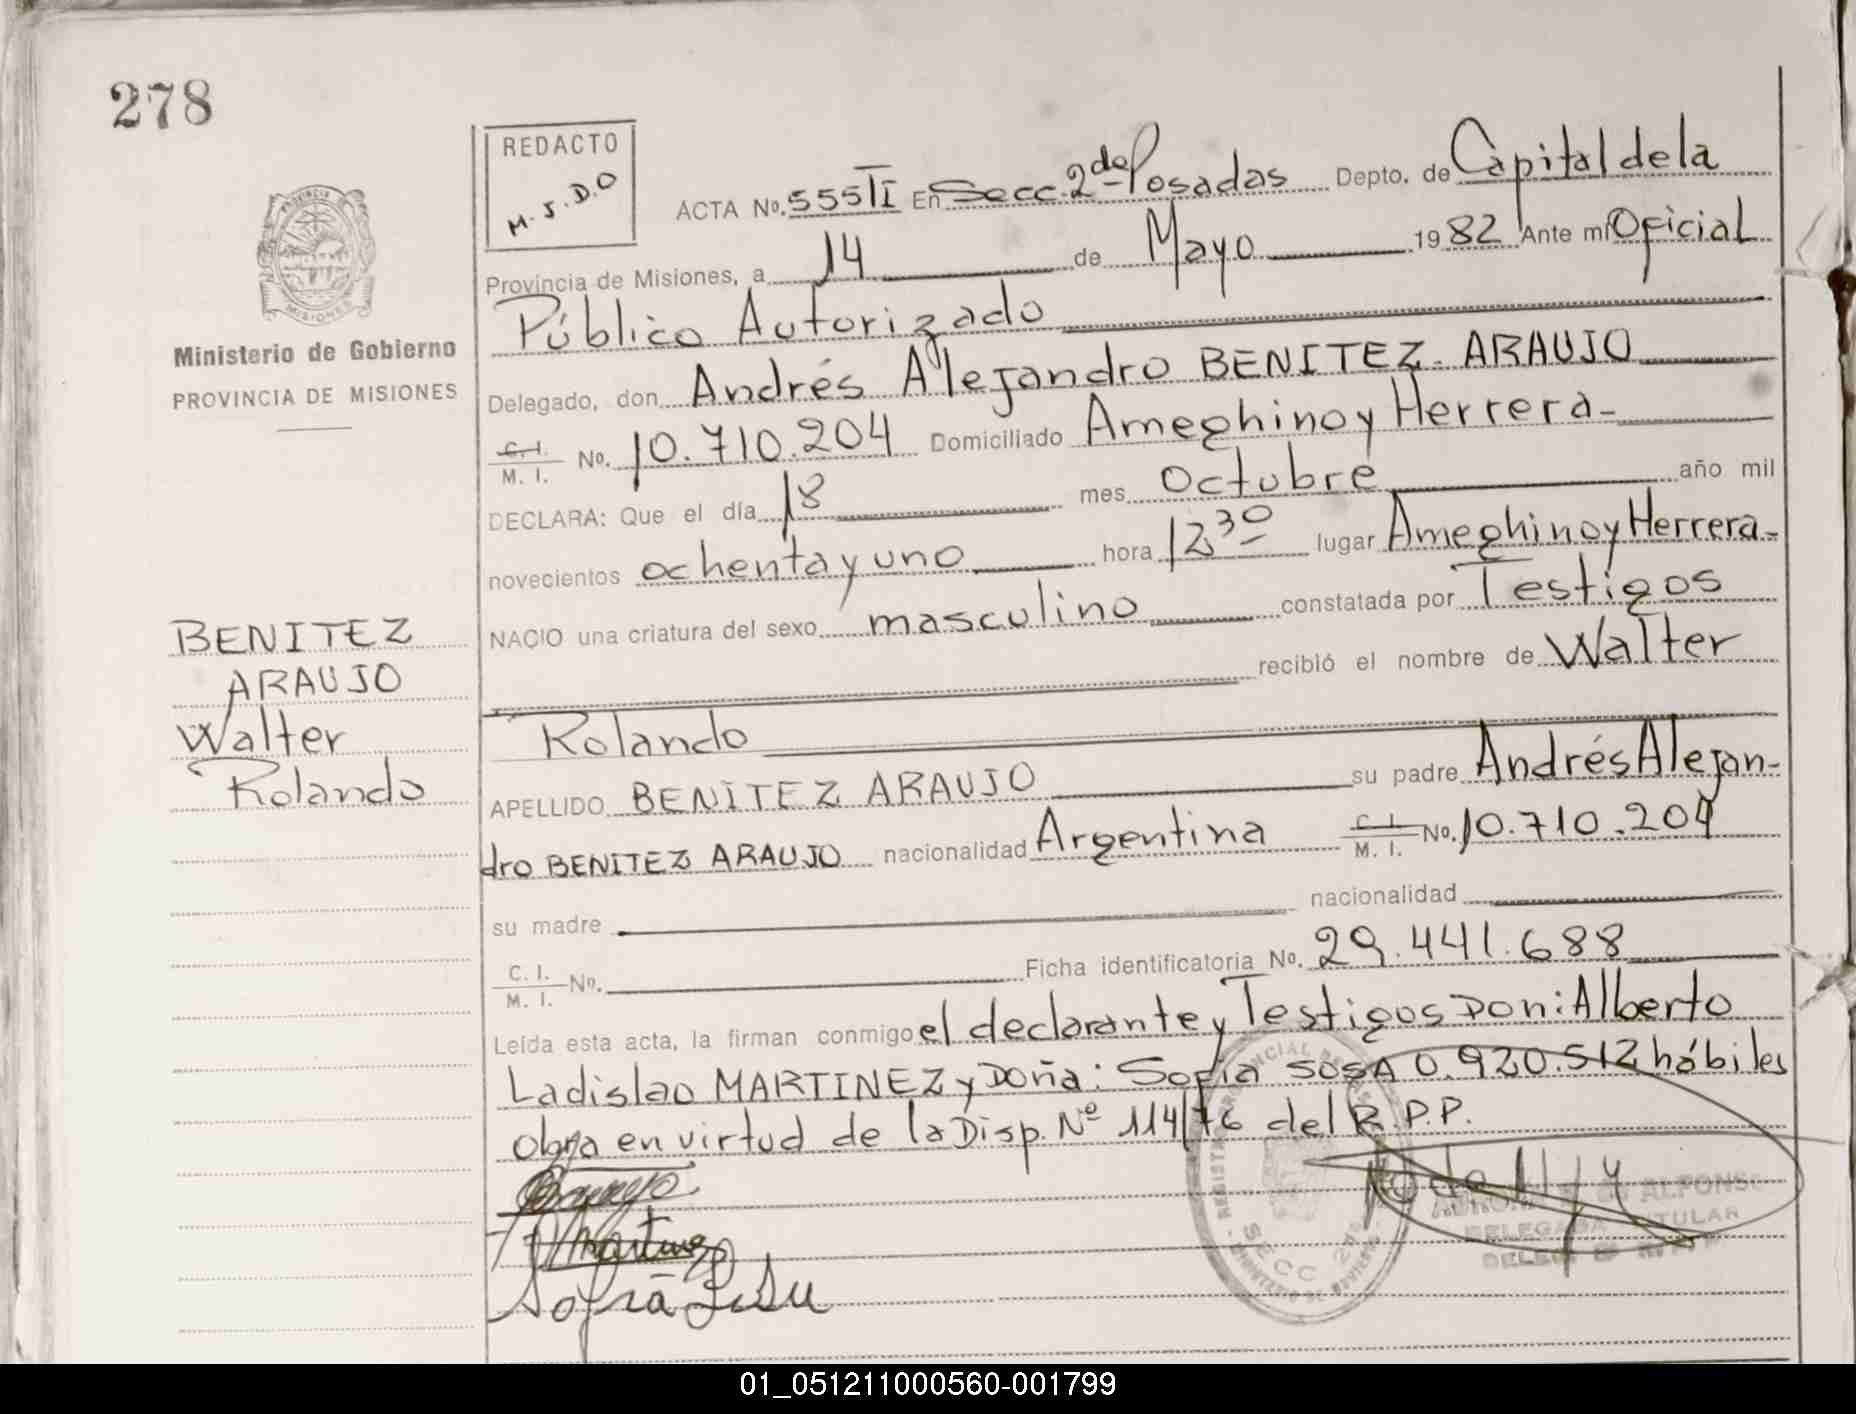 278
REDACTO
M.S.D.O
PROVINCIA DE
MISIONES
Ministerio de Gobierno
PROVINCIA DE MISIONES
BENITEZ
ARAUJO
Walter
Rolando
ACTA No. 555 II En Secc. 2da Posadas Depto. de Capital de la
Provincia de Misiones, a 14 de Mayo 1982 Ante mí Oficial
Público Autorizado
Delegado, don Andrés Alejandro BENITEZ ARAUJO
C. I. / M. I. No. 10.710.204 Domiciliado Ameghino y Herrera-
DECLARA: Que el día 18 mes octubre año mil
novecientos ochenta y uno hora 12 30 lugar Ameghino y Herrera-
NACIO una criatura del sexo masculino constatada por Testigos
recibió el nombre de Walter
Rolando
APELLIDO BENITEZ ARAUJO su padre Andrés Alejan-
dro BENITEZ ARAUJO nacionalidad Argentina C. I. / M. I. No. 10.710.204
su madre nacionalidad
C. I. / M. I. No. Ficha identificatoria No. 29.441.688
Leída esta acta, la firman conmigo el declarante y Testigos Don: Alberto
Ladislao MARTINEZ y Doña: Sofía SOSA 0.920.512 hábiles
Obra en virtud de la Disp. Nº 114/76 del R.P.P.
SECC 2da
ALFONSO
DELEGADA TITULAR
Martinez
Sofia
01_051211000560-001799